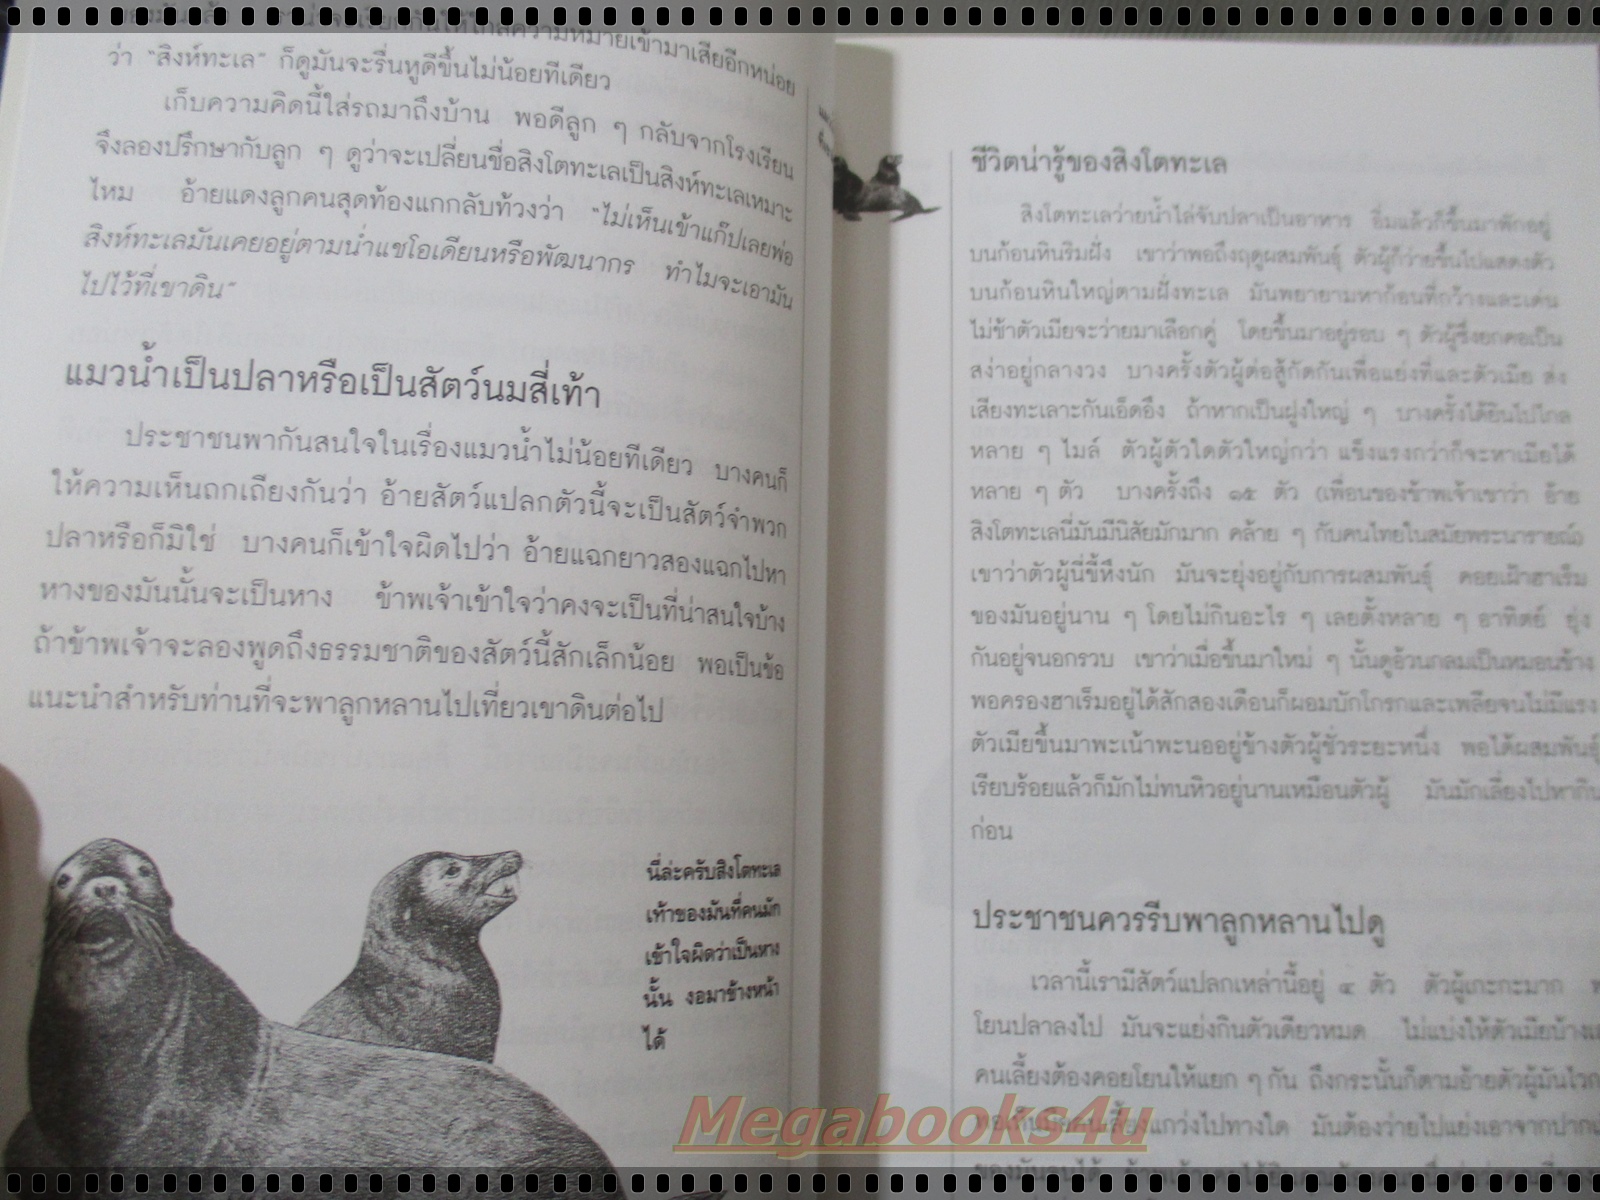 ความหมายเข้ามาเสียอีกหน่อย
ว่า “สิงห์ทะเล” ก็ดูมันจะรื่นหูดีขึ้นไม่น้อยทีเดียว
เก็บความคิดนี้ใส่รถมาถึงบ้าน พอดีลูก ๆ กลับจากโรงเรียน
จึงลองปรึกษากับลูก ๆ ดูว่าจะเปลี่ยนชื่อสิงโตทะเลเป็นสิงห์ทะเลเหมาะ
ไหม อ้ายแดงลูกคนสุดท้องแกกลับท้วงว่า “ไม่เห็นเข้าแก๊ปเลยพ่อ
สิงห์ทะเลมันเคยอยู่ตามน่ำแชโอเดียนหรือพัฒนากร ทำไมจะเอามัน
ไปไว้ที่เขาดิน”
แมวน้ำเป็นปลาหรือเป็นสัตว์นมสี่เท้า
ประชาชนพากันสนใจในเรื่องแมวน้ำไม่น้อยทีเดียว บางคนก็
ให้ความเห็นถกเถียงกันว่า อ้ายสัตว์แปลกตัวนี้จะเป็นสัตว์จำพวก
ปลาหรือก็มิใช่ บางคนก็เข้าใจผิดไปว่า อ้ายแฉกยาวสองแฉกไปหา
หางของมันนั้นจะเป็นหาง ข้าพเจ้าเข้าใจว่าคงจะเป็นที่น่าสนใจบ้าง
ถ้าข้าพเจ้าจะลองพูดถึงธรรมชาติของสัตว์นี้สักเล็กน้อย พอเป็นข้อ
แนะนำสำหรับท่านที่จะพาลูกหลานไปเที่ยวเขาดินต่อไป
นี่ล่ะครับสิงโตทะเล
เท้าของมันที่คนมัก
เข้าใจผิดว่าเป็นหาง
นั้น งอมาข้างหน้า
ได้
ชีวิตน่ารู้ของสิงโตทะเล
สิงโตทะเลว่ายน้ำไล่จับปลาเป็นอาหาร อิ่มแล้วก็ขึ้นมาพักอยู่
บนก้อนหินริมฝั่ง เขาว่าพอถึงฤดูผสมพันธุ์ ตัวผู้ก็ว่ายขึ้นไปแสดงตัว
บนก้อนหินใหญ่ตามฝั่งทะเล มันพยายามหาก้อนที่กว้างและเด่น
ไม่ช้าตัวเมียจะว่ายมาเลือกคู่ โดยขึ้นมาอยู่รอบ ๆ ตัวผู้ซึ่งยกคอเป็น
สง่าอยู่กลางวง บางครั้งตัวผู้ต่อสู้กัดกันเพื่อแย่งที่และตัวเมีย ส่ง
เสียงทะเลาะกันเอ็ดอึง ถ้าหากเป็นฝูงใหญ่ ๆ บางครั้งได้ยินไปไกล
หลาย ๆ ไมล์ ตัวผู้ตัวใดตัวใหญ่กว่า แข็งแรงกว่าก็จะหาเมียได้
หลาย ๆ ตัว บางครั้งถึง ๑๕ ตัว (เพื่อนของข้าพเจ้าเขาว่า อ้าย
สิงโตทะเลนี่มันมีนิสัยมักมาก คล้าย ๆ กับคนไทยในสมัยพระนารายณ์)
เขาว่าตัวผู้นี่ขี้หึงนัก มันจะยุ่งอยู่กับการผสมพันธุ์ คอยเฝ้าฮาเร็ม
ของมันอยู่นาน ๆ โดยไม่กินอะไร ๆ เลยตั้งหลาย ๆ อาทิตย์ ยุ่ง
กันอยู่จนอกรวบ เขาว่าเมื่อขึ้นมาใหม่ ๆ นั้นดูอ้วนกลมเป็นหมอนข้าง
พอครองฮาเร็มอยู่ได้สักสองเดือนก็ผอมบักโกรกและเพลียจนไม่มีแรง
ตัวเมียขึ้นมาพะเน้าพะนออยู่ข้างตัวผู้ชั่วระยะหนึ่ง พอได้ผสมพันธุ์
เรียบร้อยแล้วก็มักไม่ทนหิวอยู่นานเหมือนตัวผู้ มันมักเลี่ยงไปหากิน
ก่อน
ประชาชนควรรีบพาลูกหลานไปดู
เวลานี้เรามีสัตว์แปลกเหล่านี้อยู่ ๔ ตัว ตัวผู้เกะกะมาก
โยนปลาลงไป มันจะแย่งกินตัวเดียวหมด ไม่แบ่งให้ตัวเมียบ้าง
คนเลี้ยงต้องคอยโยนให้แยก ๆ กัน ถึงกระนั้นก็ตามอ้ายตัวผู้มันไว
แกว่งไปทางใด มันต้องว่ายไปแย่งเอาจากปาก
Megabooks4u